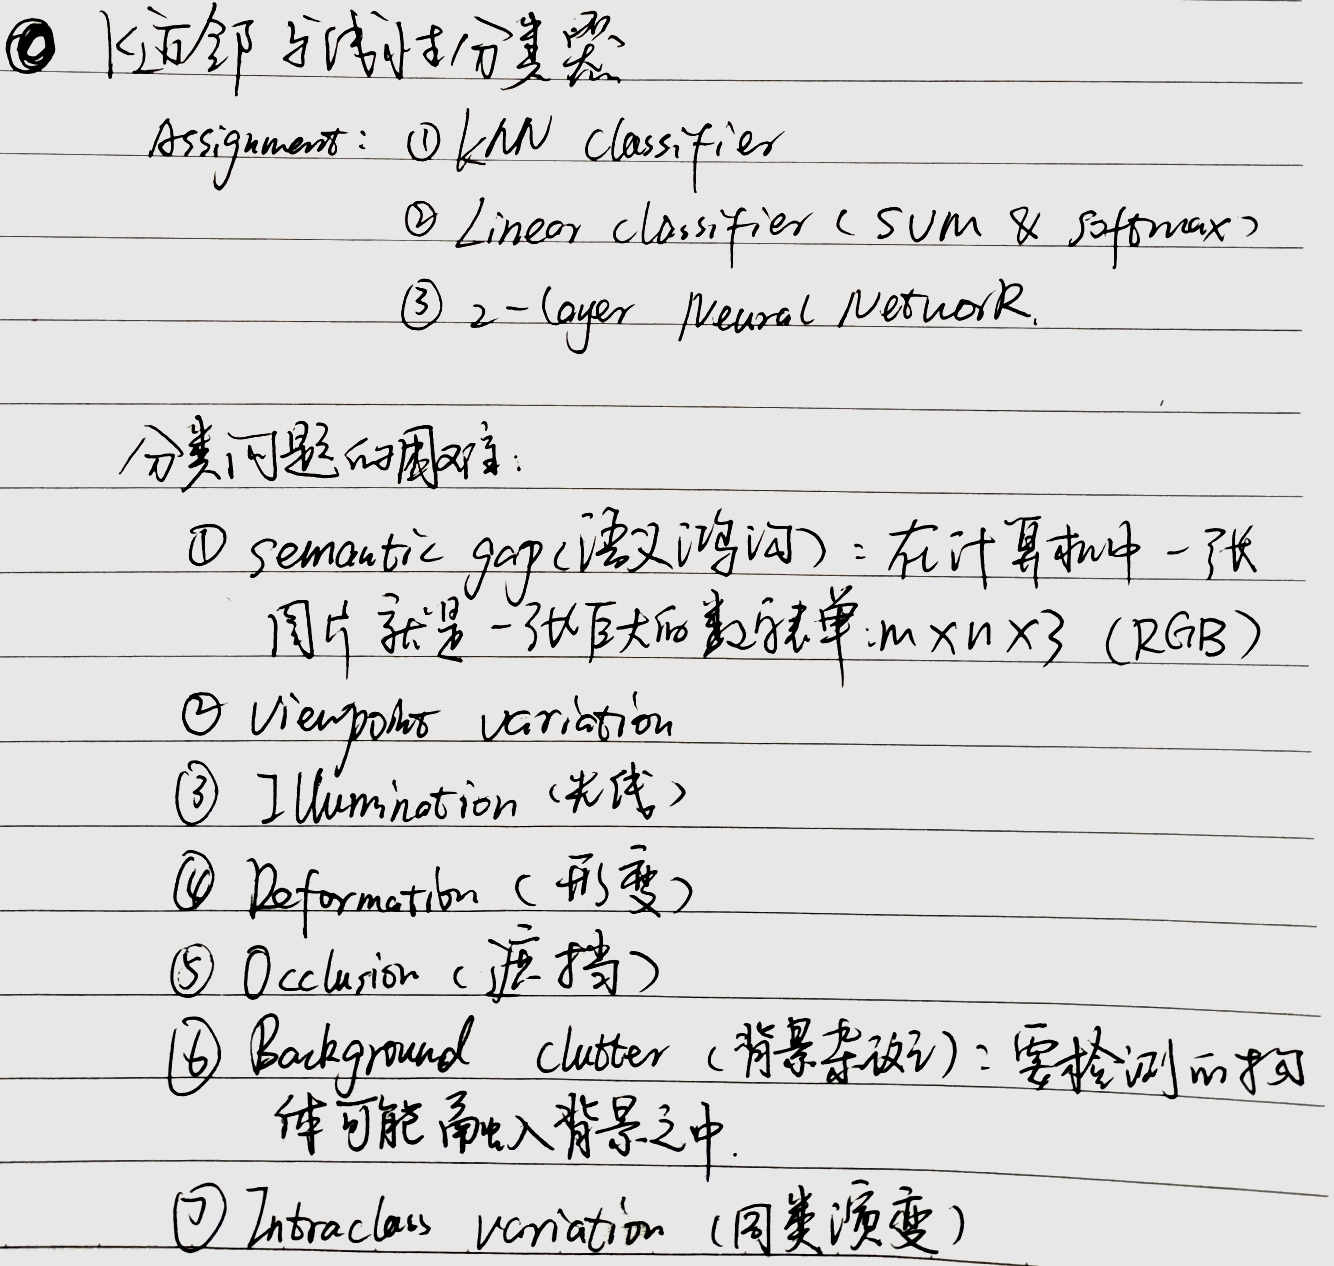 K近邻与线性分类器
Assignment: ① kNN classifier
② Linear classifier (SVM & softmax)
③ 2-layer Neural Network.
分类问题的困难:
① semantic gap(语义鸿沟): 在计算机中一张
图片就是一张巨大的数字表单:m×n×3 (RGB)
② Viewpoint variation
③ Illumination (光线)
④ Deformation (形变)
⑤ Occlusion (遮挡)
⑥ Background clutter (背景杂波): 要检测的物
体可能融入背景之中.
⑦ Intraclass variation (同类演变)